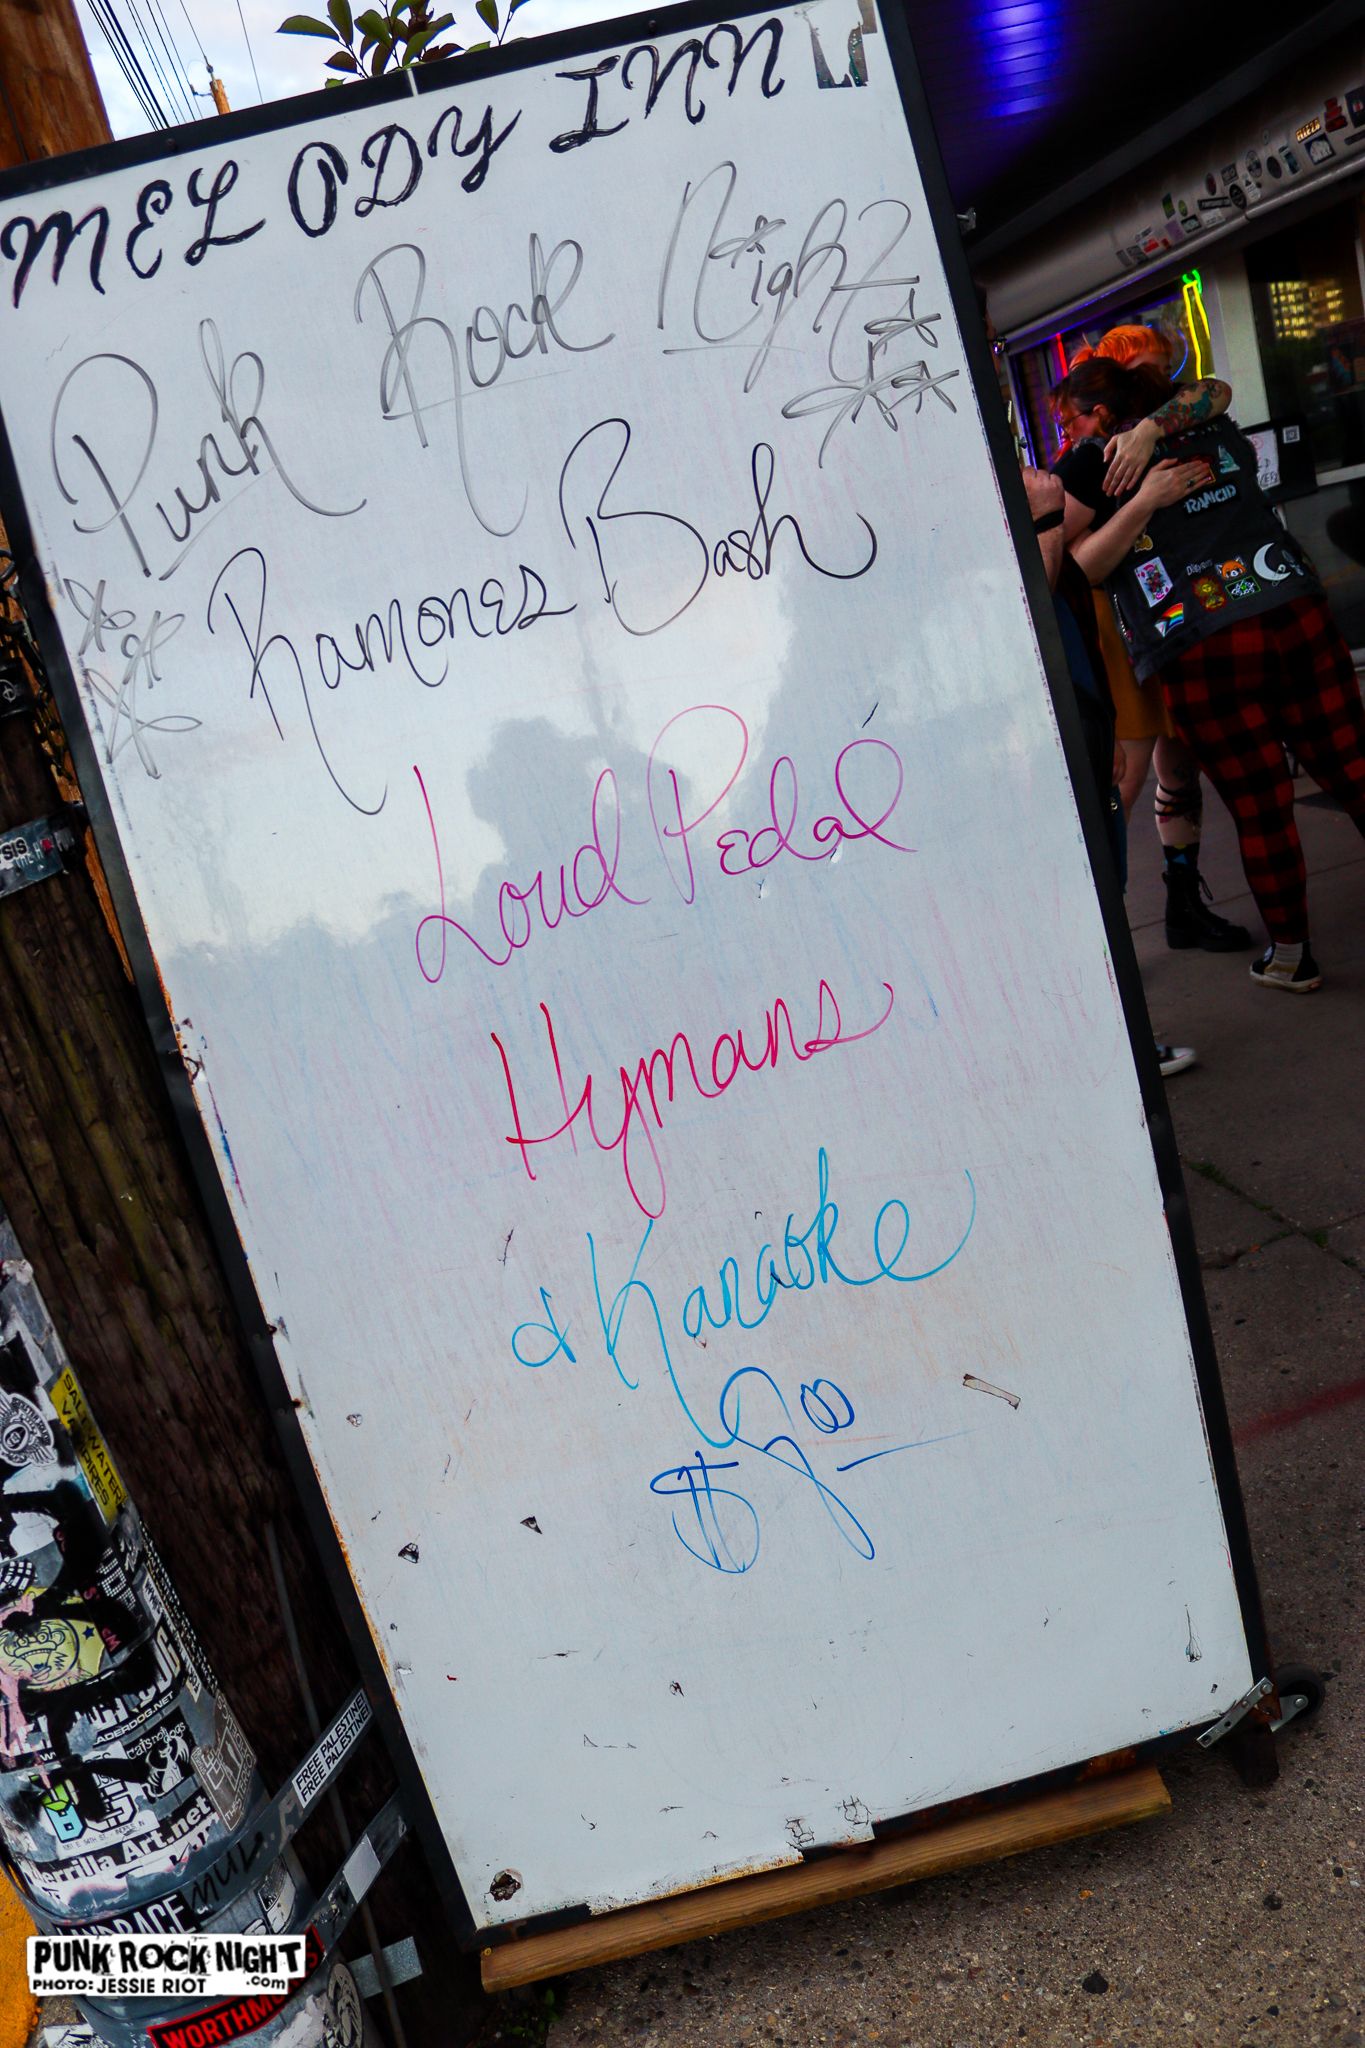 MELODY INN
Punk Rock Night
Ramones Bash
Loud Pedal
Hymans
& Karaoke
$900
RANCID
SALTWATER
VAMPIRES
FREE PALESTINE!
FREE PALESTINE!
catsnotdogs
Art.net
PUNK ROCK NIGHT
.com
PHOTO: JESSIE RIOT